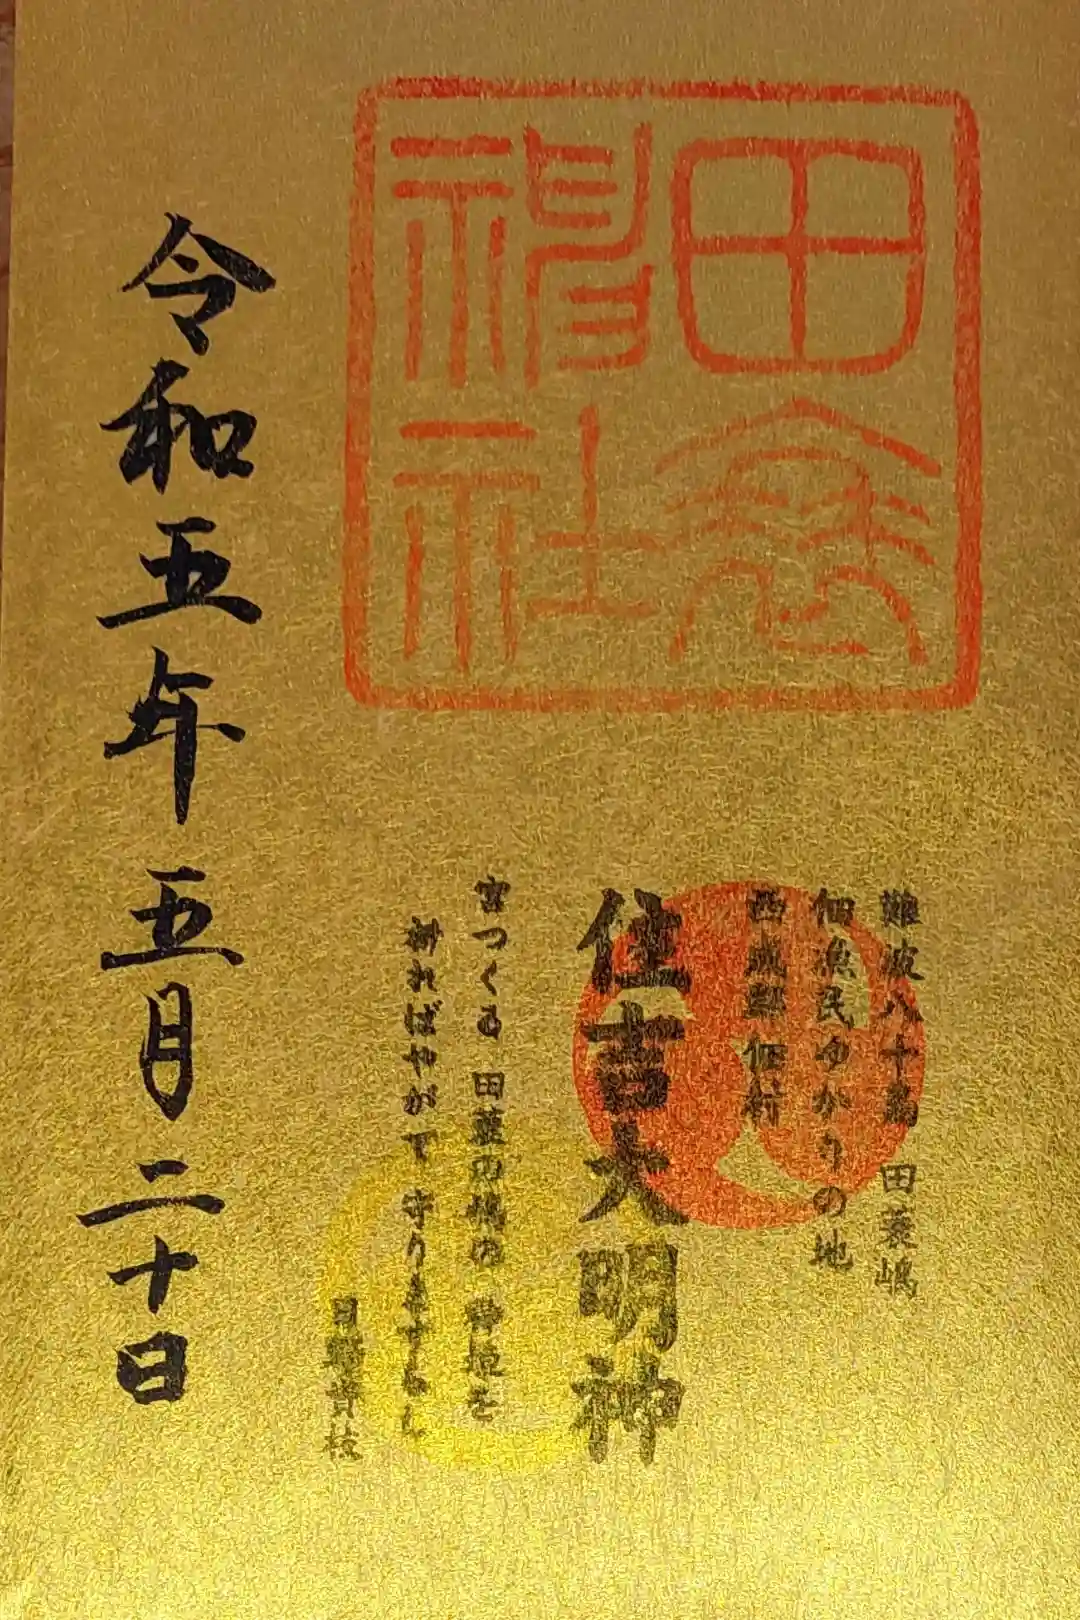 田蓑
神社
難波八十島 田蓑嶋
佃漁民ゆかりの地
西成郡佃村
住吉大明神
宮つくる 田蓑の嶋の
斎ればやがて 守りますらし
日野資枝
令和五年五月二十日